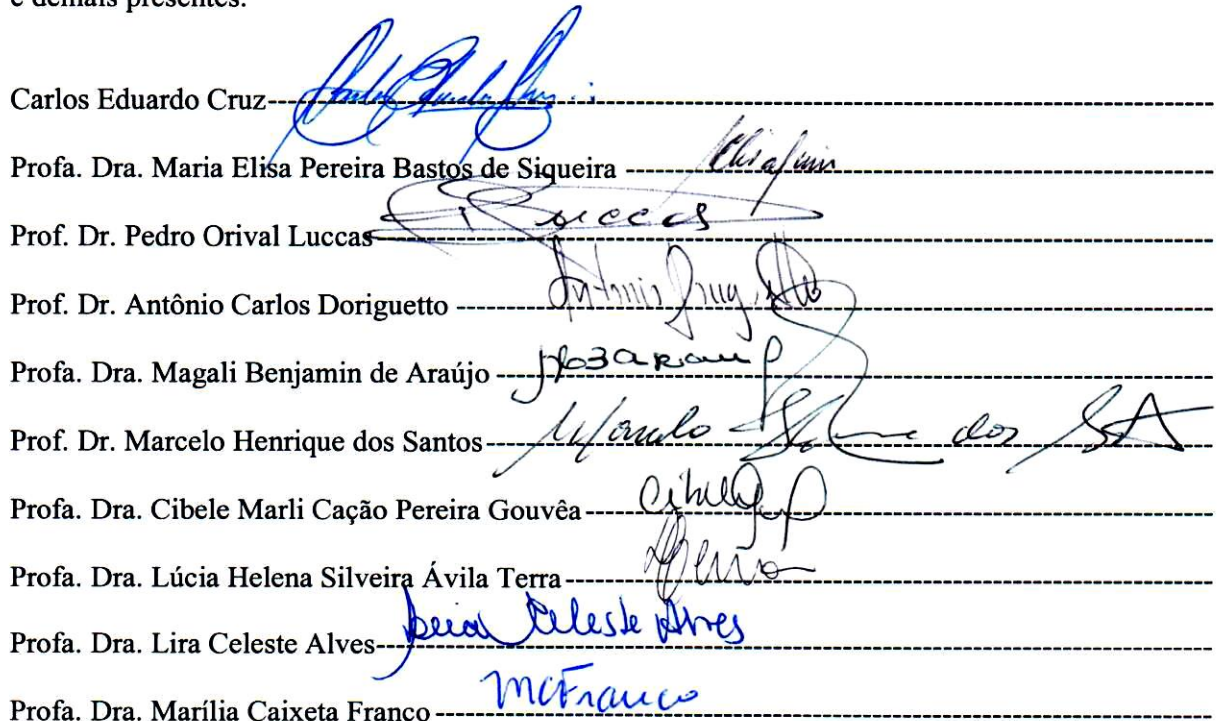 e demais presentes.
Carlos Eduardo Cruz
Profa. Dra. Maria Elisa Pereira Bastos de Siqueira
Prof. Dr. Pedro Orival Luccas
Prof. Dr. Antônio Carlos Doriguetto
Profa. Dra. Magali Benjamin de Araújo
Prof. Dr. Marcelo Henrique dos Santos dos
Profa. Dra. Cibele Marli Cação Pereira Gouvêa
Profa. Dra. Lúcia Helena Silveira Ávila Terra
Profa. Dra. Lira Celeste Alves Celeste Alves
Profa. Dra. Marília Caixeta Franco MCFranco